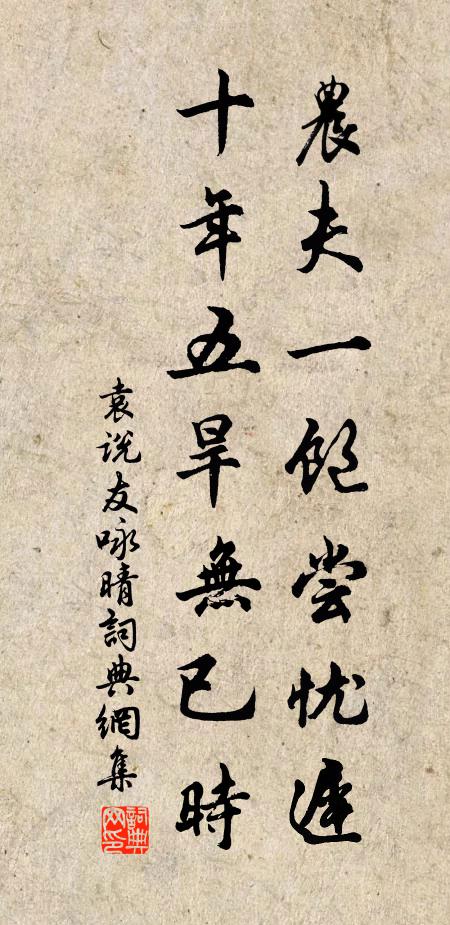 農夫一飽尝忧遲
十年五旱無已時
袁说友咏晴詞典網集
詞典网印